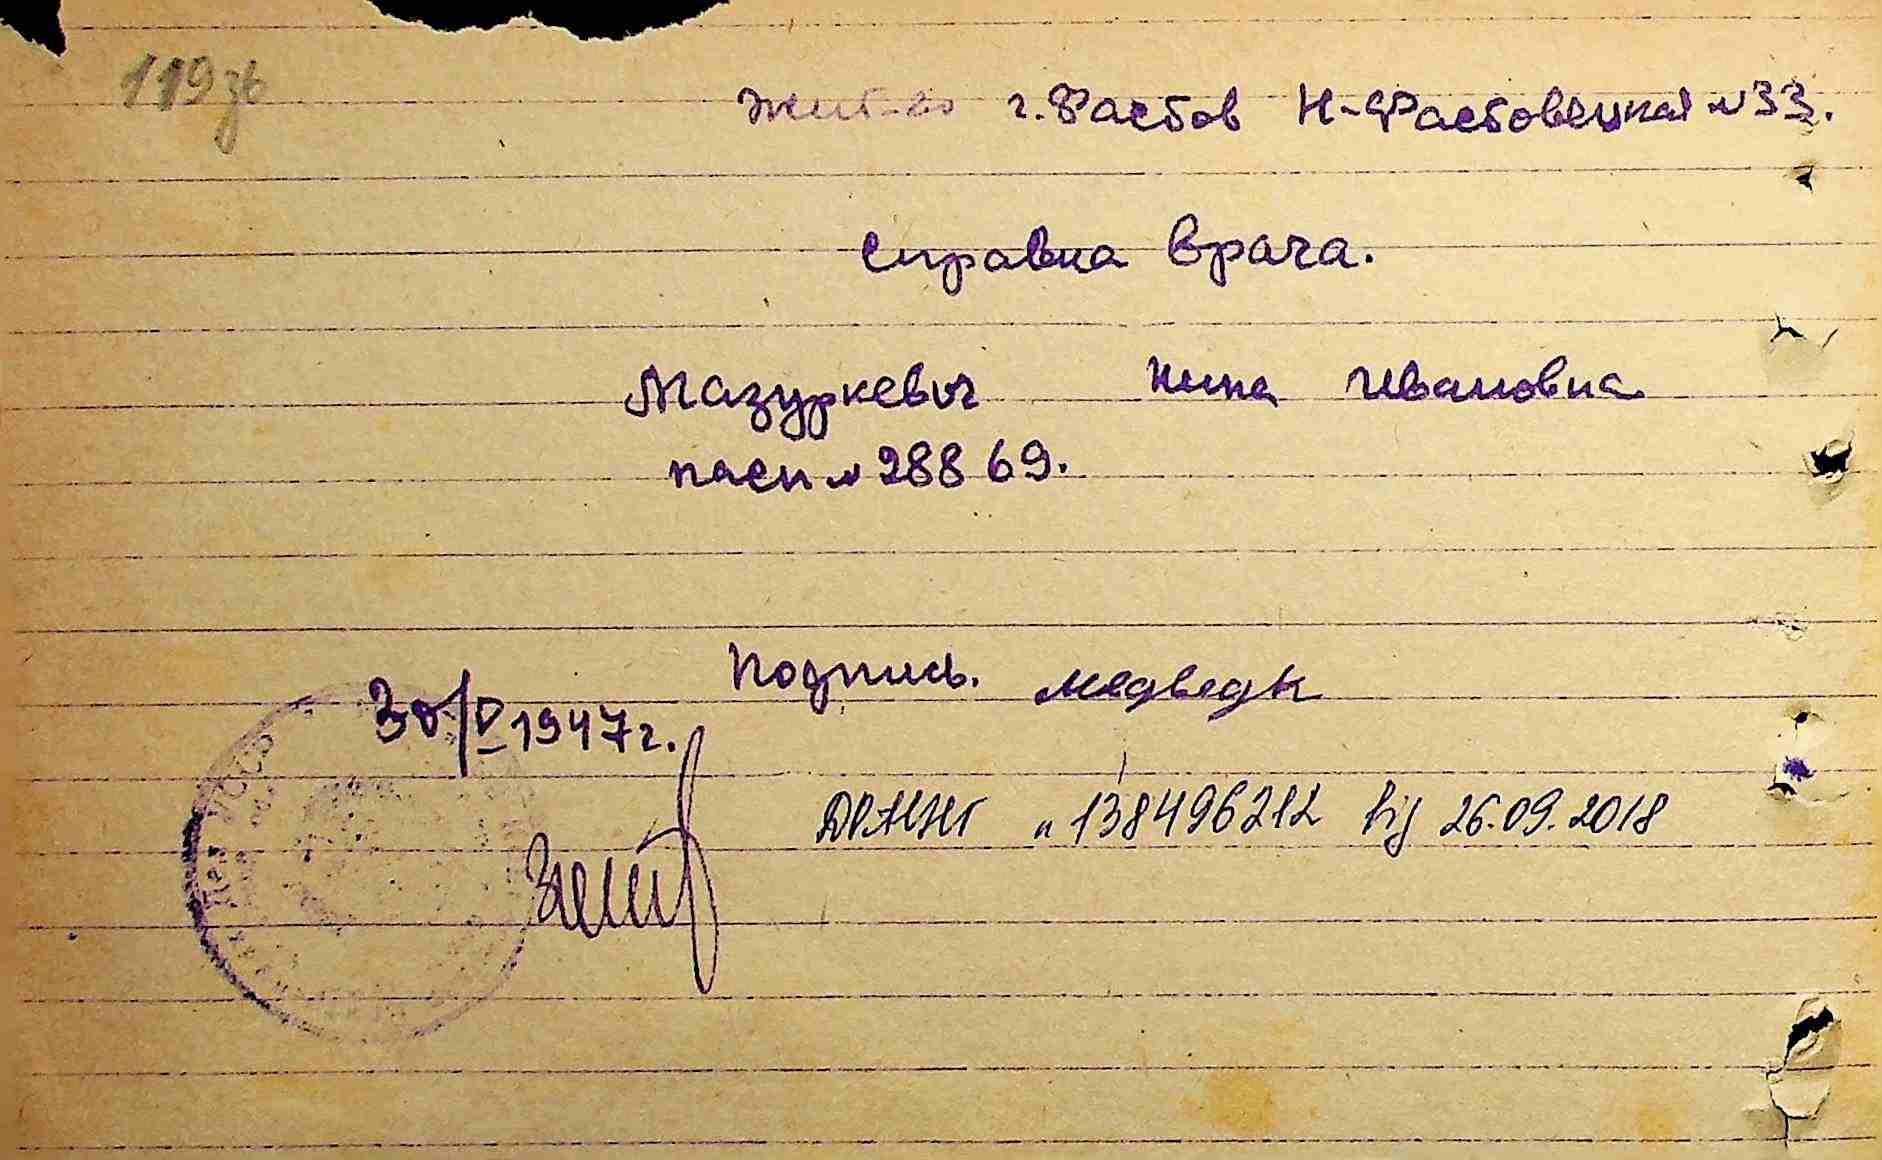 119зв
Жит-во г. Фастов Н-Фастовецкая N 33.
Справка врача.
Мазуркевич Нина Ивановна
пасп N 28869.
Подпись. Медведь
30/V 1947г.
ДРАЦС n 138496212 від 26.09.2018
УССР